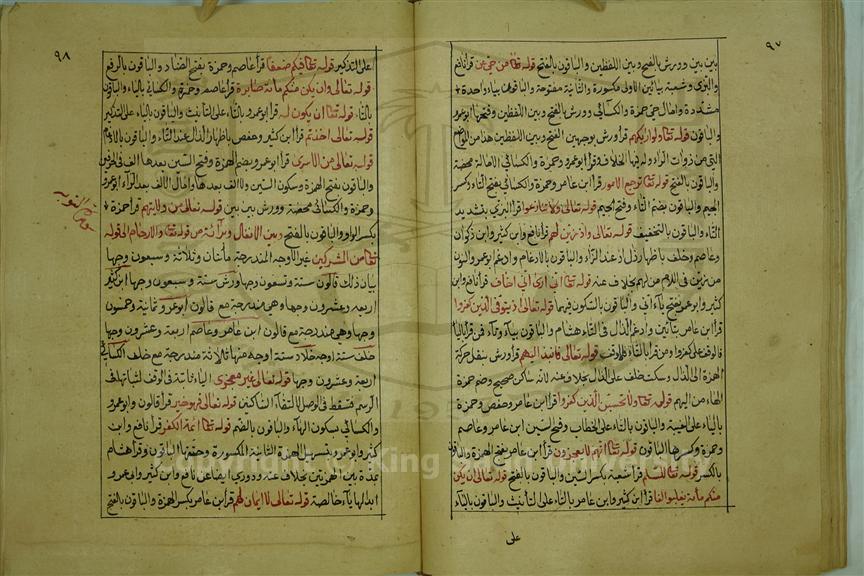 ٩٧
بين بين وورش بالفتح وبين اللفظين والباقون بالفتح قوله تعالى من حي عن قرأ نافع
والبزي وشعبة بيائين الاولى مكسورة والثانية مفتوحة والباقون بياء واحدة
مشددة وامال حتى حمزة والكسائي وورش بالفتح وبين اللفظين وفتحها ابو عمرو
والباقون قوله تعالى ولو اريكهم قرأ ورش بوجهين الفتح وبين اللفظين هذا من المواضع
التي من ذوات الراء وله فيها الخلاف وقرأ ابو عمرو وحمزة والكسائي الامالة محضة
والباقون بالفتح قوله تعالى ترجع الامور قرأ ابن عامر وحمزة والكسائي بفتح التاء وكسر
الجيم والباقون بضم التاء وفتح الجيم قوله تعالى ولا تنازعوا قرأ البزي بتشديد
التاء والباقون بالتخفيف قوله تعالى واذ زين لهم قرأ نافع وابن كثير وابن ذكوان
وعاصم وخلف باظهار ذال اذ عند الزاء والباقون بالادغام وادغم ابو عمرو النون
من زين في اللام من لهم بخلاف عنه قوله تعالى اني ارى اني اخاف قرأ نافع وابن
كثير وابو عمرو بفتح ياء اني والباقون بالسكون فيهما قوله تعالى اذ يتوفى الذين كفروا
قرأ ابن عامر بتائين وادغم الذال في التاء هشام والباقون بياء وتاء فمن قرأ بالياء
فالوقف على كفروا ومن قرأ بالتاء فلا وقف قوله تعالى فانبذ اليهم قرأ ورش بنقل حركة
الهمزة الى الذال وسكت خلف على الذال بخلاف عنه لانه ساكن صحيح وضم حمزة
الهاء من اليهم قوله تعالى ولا يحسبن الذين كفروا قرأ ابن عامر وحفص وحمزة
بالياء على الغيبة والباقون بالتاء على الخطاب وفتح السين ابن عامر وعاصم
وحمزة وكسرها الباقون قوله تعالى انهم لا يعجزون قرأ ابن عامر بفتح الهمزة والباقون
بالكسر قوله تعالى للسلم قرأ شعبة بكسر السين والباقون بالفتح قوله تعالى ان يكن
منكم مائة يغلبوا الفا قرأ ابن كثير وابن عامر بالتاء على التأنيث والباقون بالياء
على
٩٨
على التذكير قوله تعالى فيكم ضعفا قرأ عاصم وحمزة بفتح الضاد والباقون بالرفع
قوله تعالى وان يكن منكم مائة صابرة قرأ عاصم وحمزة والكسائي بالياء والباقون
بالتاء قوله تعالى ان يكون له قرأ ابو عمرو بالتاء على التأنيث والباقون بالياء على التذكير
قوله تعالى اخذتم قرأ ابن كثير وحفص باظهار الذال عند التاء والباقون بالادغام
قوله تعالى من الاسرى قرأ ابو عمرو بضم الهمزة وفتح السين بعدها الف في الحرفين
والباقون بفتح الهمزة وسكون السين ولا الف بعدها وامال الالف بعد الراء ابو عمرو
وحمزة والكسائي محضة وورش بين بين قوله تعالى من ولايتهم قرأ حمزة
بكسر الواو والباقون بالفتح وبين الانفال وبرائة من قوله تعالى والارحام الى قوله
تعالى من المشركين غير الاوجه المندرجة مائتان وثلاثة وسبعون وجها
بيان ذلك قالون ستة وتسعون وجها ورش ستة وسبعون وجها ابن كثير
اربعة وعشرون وجها وهي مندرجة مع قالون ابو عمرو ثمانية وخمسون
وجها وهي مندرجة مع قالون ابن عامر وعاصم اربعة وعشرون وجها
خلف ستة اوجه خلاد ستة اوجه منها ثلاثة مندرجة مع خلف الكسائي
اربعة وعشرون وجها قوله تعالى غير معجزي الياء ثابتة في الوقف لثباتها في
الرسم فتسقط في الوصل لالتقاء الساكنين قوله تعالى فهو خير قرأ قالون وابو عمرو
والكسائي بسكون الهاء والباقون بالضم قوله تعالى ائمة الكفر قرأ نافع وابن
كثير وابو عمرو بتسهيل الهمزة الثانية المكسورة وحققها الباقون وقرأ هشام
بمدة بين الهمزتين بخلاف عنه وروي ايضا عن نافع وابن كثير وابو عمرو
ابدالها ياء خالصة قوله تعالى لا ايمان لهم قرأ ابن عامر بكسر الهمزة والباقون بالفتح
التوبه